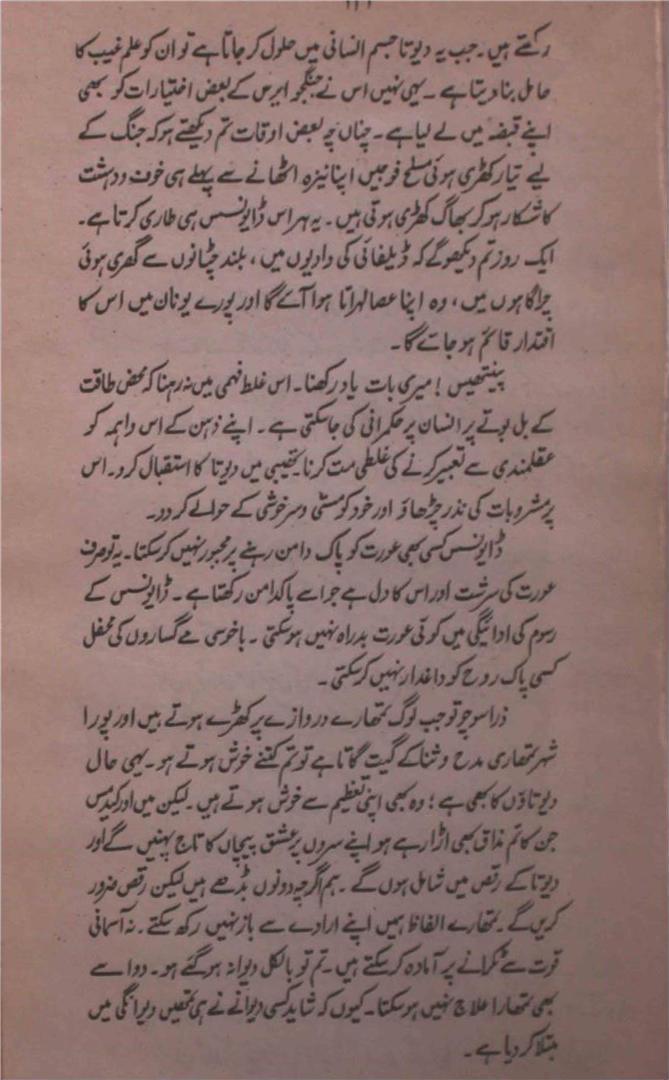 رکھتے ہیں۔ جب یہ دیوتا جسم انسانی میں حلول کر جاتا ہے تو ان کو علم غیب کا
حامل بنا دیتا ہے۔ یہی نہیں اس نے جنگجو ایرس کے بعض اختیارات کو بھی
اپنے قبضہ میں لے لیا ہے۔ چناں چہ بعض اوقات تم دیکھتے ہو کہ جنگ کے
لیے تیار کھڑی ہوئی مسلح فوجیں اپنا نیزہ اٹھانے سے پہلے ہی خوف و دہشت
کا شکار ہو کر بھاگ کھڑی ہوتی ہیں۔ یہ ہراس ڈایونسس ہی طاری کرتا ہے۔
ایک روز تم دیکھو گے کہ ڈیلفائی کی وادیوں میں، بلند چٹانوں سے گھری ہوئی
چراگاہوں میں، وہ اپنا عصا لہراتا ہوا آئے گا اور پورے یونان میں اس کا
اقتدار قائم ہو جائے گا۔
پینتھیس! میری بات یاد رکھنا۔ اس غلط فہمی میں نہ رہنا کہ محض طاقت
کے بل بوتے پر انسان پر حکمرانی کی جاسکتی ہے۔ اپنے ذہن کے اس واہمہ کو
عقلمندی سے تعبیر کرنے کی غلطی مت کرنا۔ تھیبی میں دیوتا کا استقبال کرو۔ اس
پر مشروبات کی نذر چڑھاؤ اور خود کو مستی و سرخوشی کے حوالے کر دو۔
ڈایونسس کسی بھی عورت کو پاک دامن رہنے پر مجبور نہیں کرسکتا۔ یہ تو صرف
عورت کی سرشت اور اس کا دل ہے جو اسے پاکدامن رکھتا ہے۔ ڈایونسس کے
رسوم کی ادائیگی میں کوئی عورت بدراہ نہیں ہوسکتی۔ باخوسی مے گساروں کی محفل
کسی پاک روح کو داغدار نہیں کرسکتی۔
ذرا سوچو تو جب لوگ تمھارے دروازے پر کھڑے ہوتے ہیں اور پورا
شہر تمھاری مدح و ثنا کے گیت گاتا ہے تو تم کتنے خوش ہوتے ہو۔ یہی حال
دیوتاؤں کا بھی ہے؛ وہ بھی اپنی تعظیم سے خوش ہوتے ہیں۔ لیکن میں اور کیڈمس
جن کا تم مذاق بھی اڑا رہے ہو اپنے سروں پر عشق پیچاں کا تاج پہنیں گے اور
دیوتا کے رقص میں شامل ہوں گے۔ ہم اگرچہ دونوں بڈھے ہیں لیکن رقص ضرور
کریں گے۔ تمھارے الفاظ ہمیں اپنے ارادے سے باز نہیں رکھ سکتے۔ نہ آسمانی
قوت سے ٹکرانے پر آمادہ کرسکتے ہیں۔ تم تو بالکل دیوانہ ہو گئے ہو۔ دوا سے
بھی تمھارا علاج نہیں ہوسکتا۔ کیوں کہ شاید کسی دوانے نے ہی تمھیں دیوانگی میں
مبتلا کر دیا ہے۔